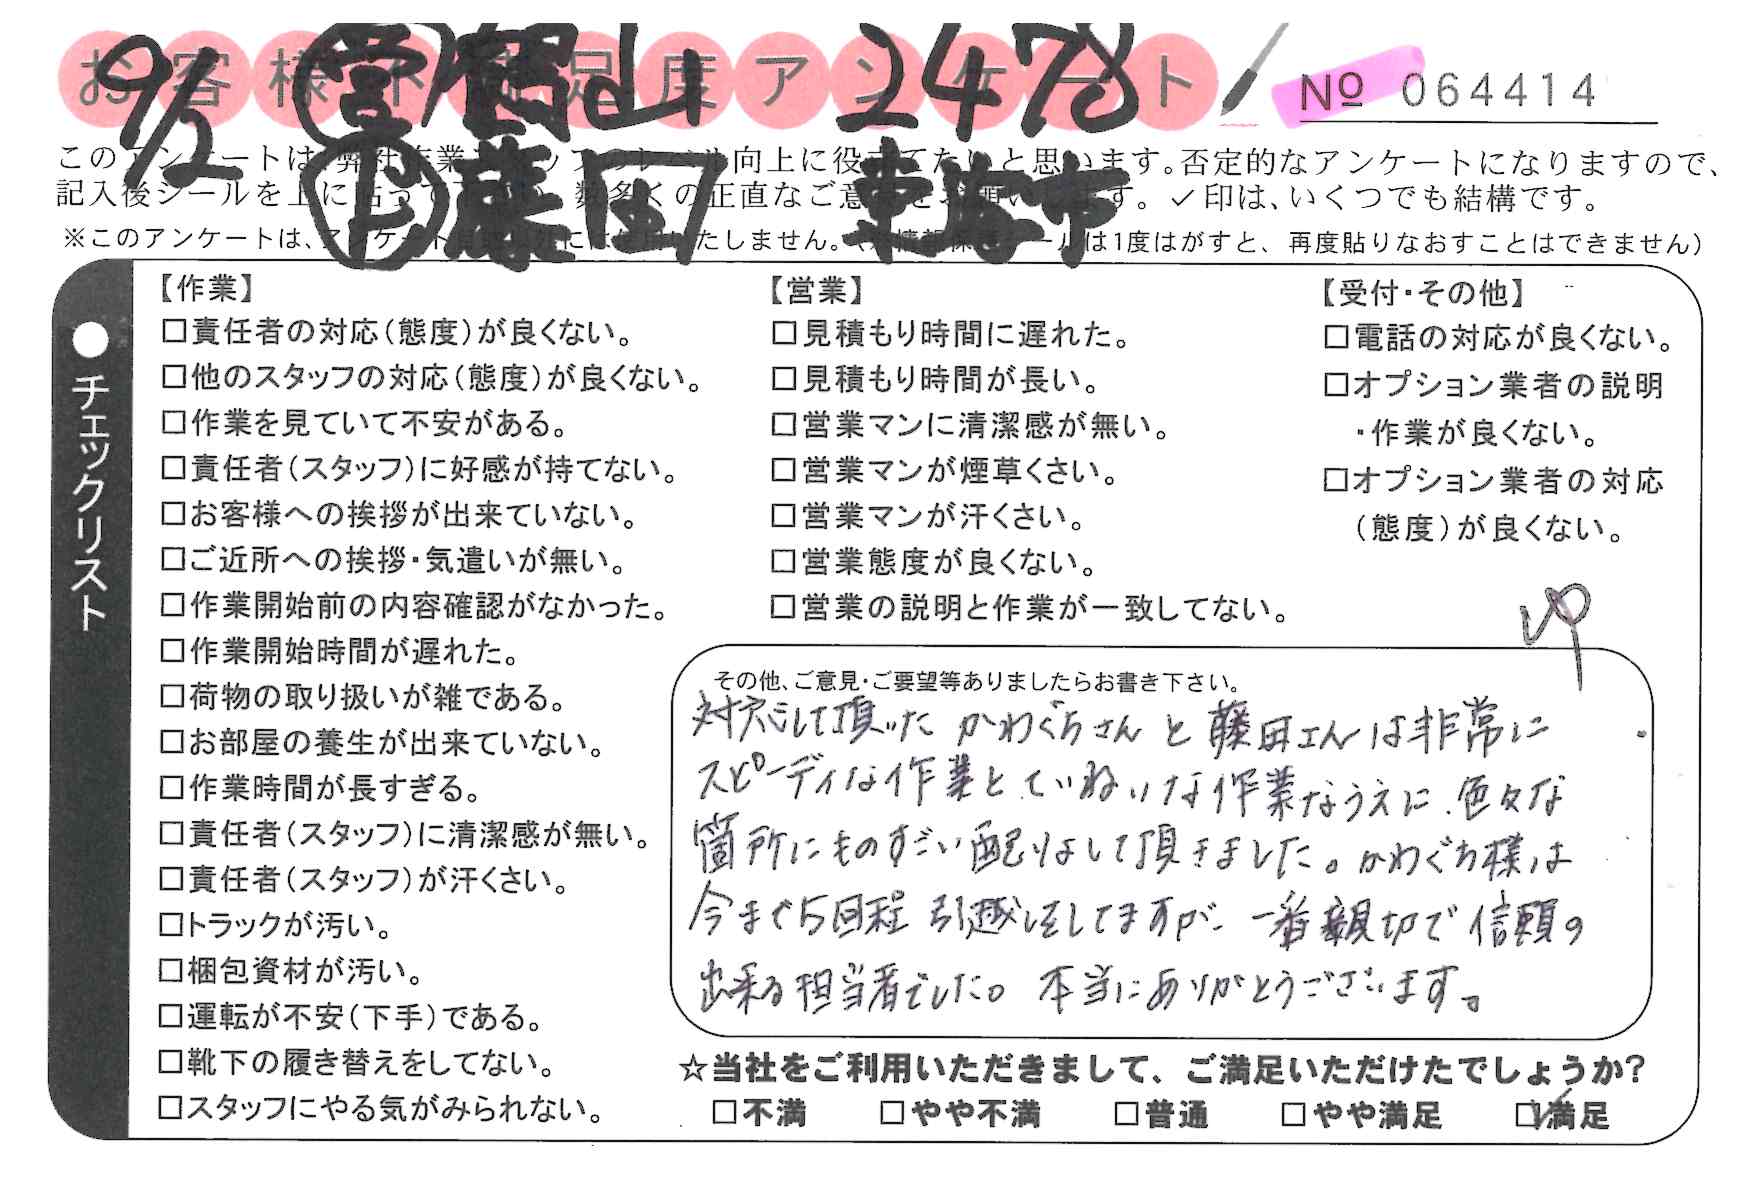 お客様不満足度アンケート
9/2 営 岡山 2478
ド 藤田 東海市
No 064414
このアンケートは、弊社作業スタッフのレベル向上に役立てたいと思います。否定的なアンケートになりますので、
記入後シールを上に貼って下さい。数多くの正直なご意見をお願いします。✓印は、いくつでも結構です。
※このアンケートは、アンケート 以外には使用いたしません。 シールは1度はがすと、再度貼りなおすことはできません)
●チェックリスト
【作業】
□責任者の対応(態度)が良くない。
□他のスタッフの対応(態度)が良くない。
□作業を見ていて不安がある。
□責任者(スタッフ)に好感が持てない。
□お客様への挨拶が出来ていない。
□ご近所への挨拶・気遣いが無い。
□作業開始前の内容確認がなかった。
□作業開始時間が遅れた。
□荷物の取り扱いが雑である。
□お部屋の養生が出来ていない。
□作業時間が長すぎる。
□責任者(スタッフ)に清潔感が無い。
□責任者(スタッフ)が汗くさい。
□トラックが汚い。
□梱包資材が汚い。
□運転が不安(下手)である。
□靴下の履き替えをしてない。
□スタッフにやる気がみられない。
【営業】
□見積もり時間に遅れた。
□見積もり時間が長い。
□営業マンに清潔感が無い。
□営業マンが煙草くさい。
□営業マンが汗くさい。
□営業態度が良くない。
□営業の説明と作業が一致してない。
【受付・その他】
□電話の対応が良くない。
□オプション業者の説明
・作業が良くない。
□オプション業者の対応
(態度)が良くない。
その他、ご意見・ご要望等ありましたらお書き下さい。
対応して頂いた かわぐちさんと藤田さんは非常に
スピーディな作業とていねいな作業なうえに、色々な
箇所にものすごい配りをして頂きました。かわぐち様は
今まで5回程引越しをしてますが、一番親切で信頼の
出来る担当者でした。本当にありがとうございます。
☆当社をご利用いただきまして、ご満足いただけたでしょうか?
□不満 □やや不満 □普通 □やや満足 ☑満足